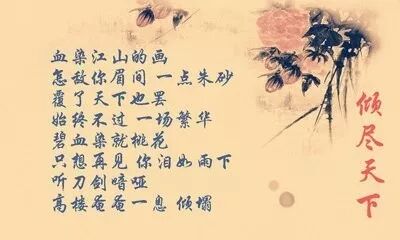 血染江山的画
怎敌你眉间 一点朱砂
覆了天下也罢
始终不过 一场繁华
碧血染就桃花
只想再见 你泪如雨下
听刀剑喑哑
高楼奄奄一息 倾塌
倾尽天下